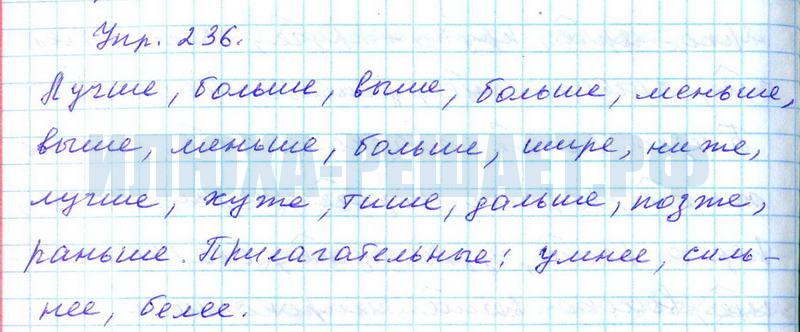 Упр. 236.
Лучше, больше, выше, больше, меньше,
выше, меньше, больше, шире, ниже,
ИЛЮХА-РЕШАЕТ.РФ
лучше, хуже, тише, дальше, позже,
раньше. Прилагательные: умнее, силь-
нее, белее.